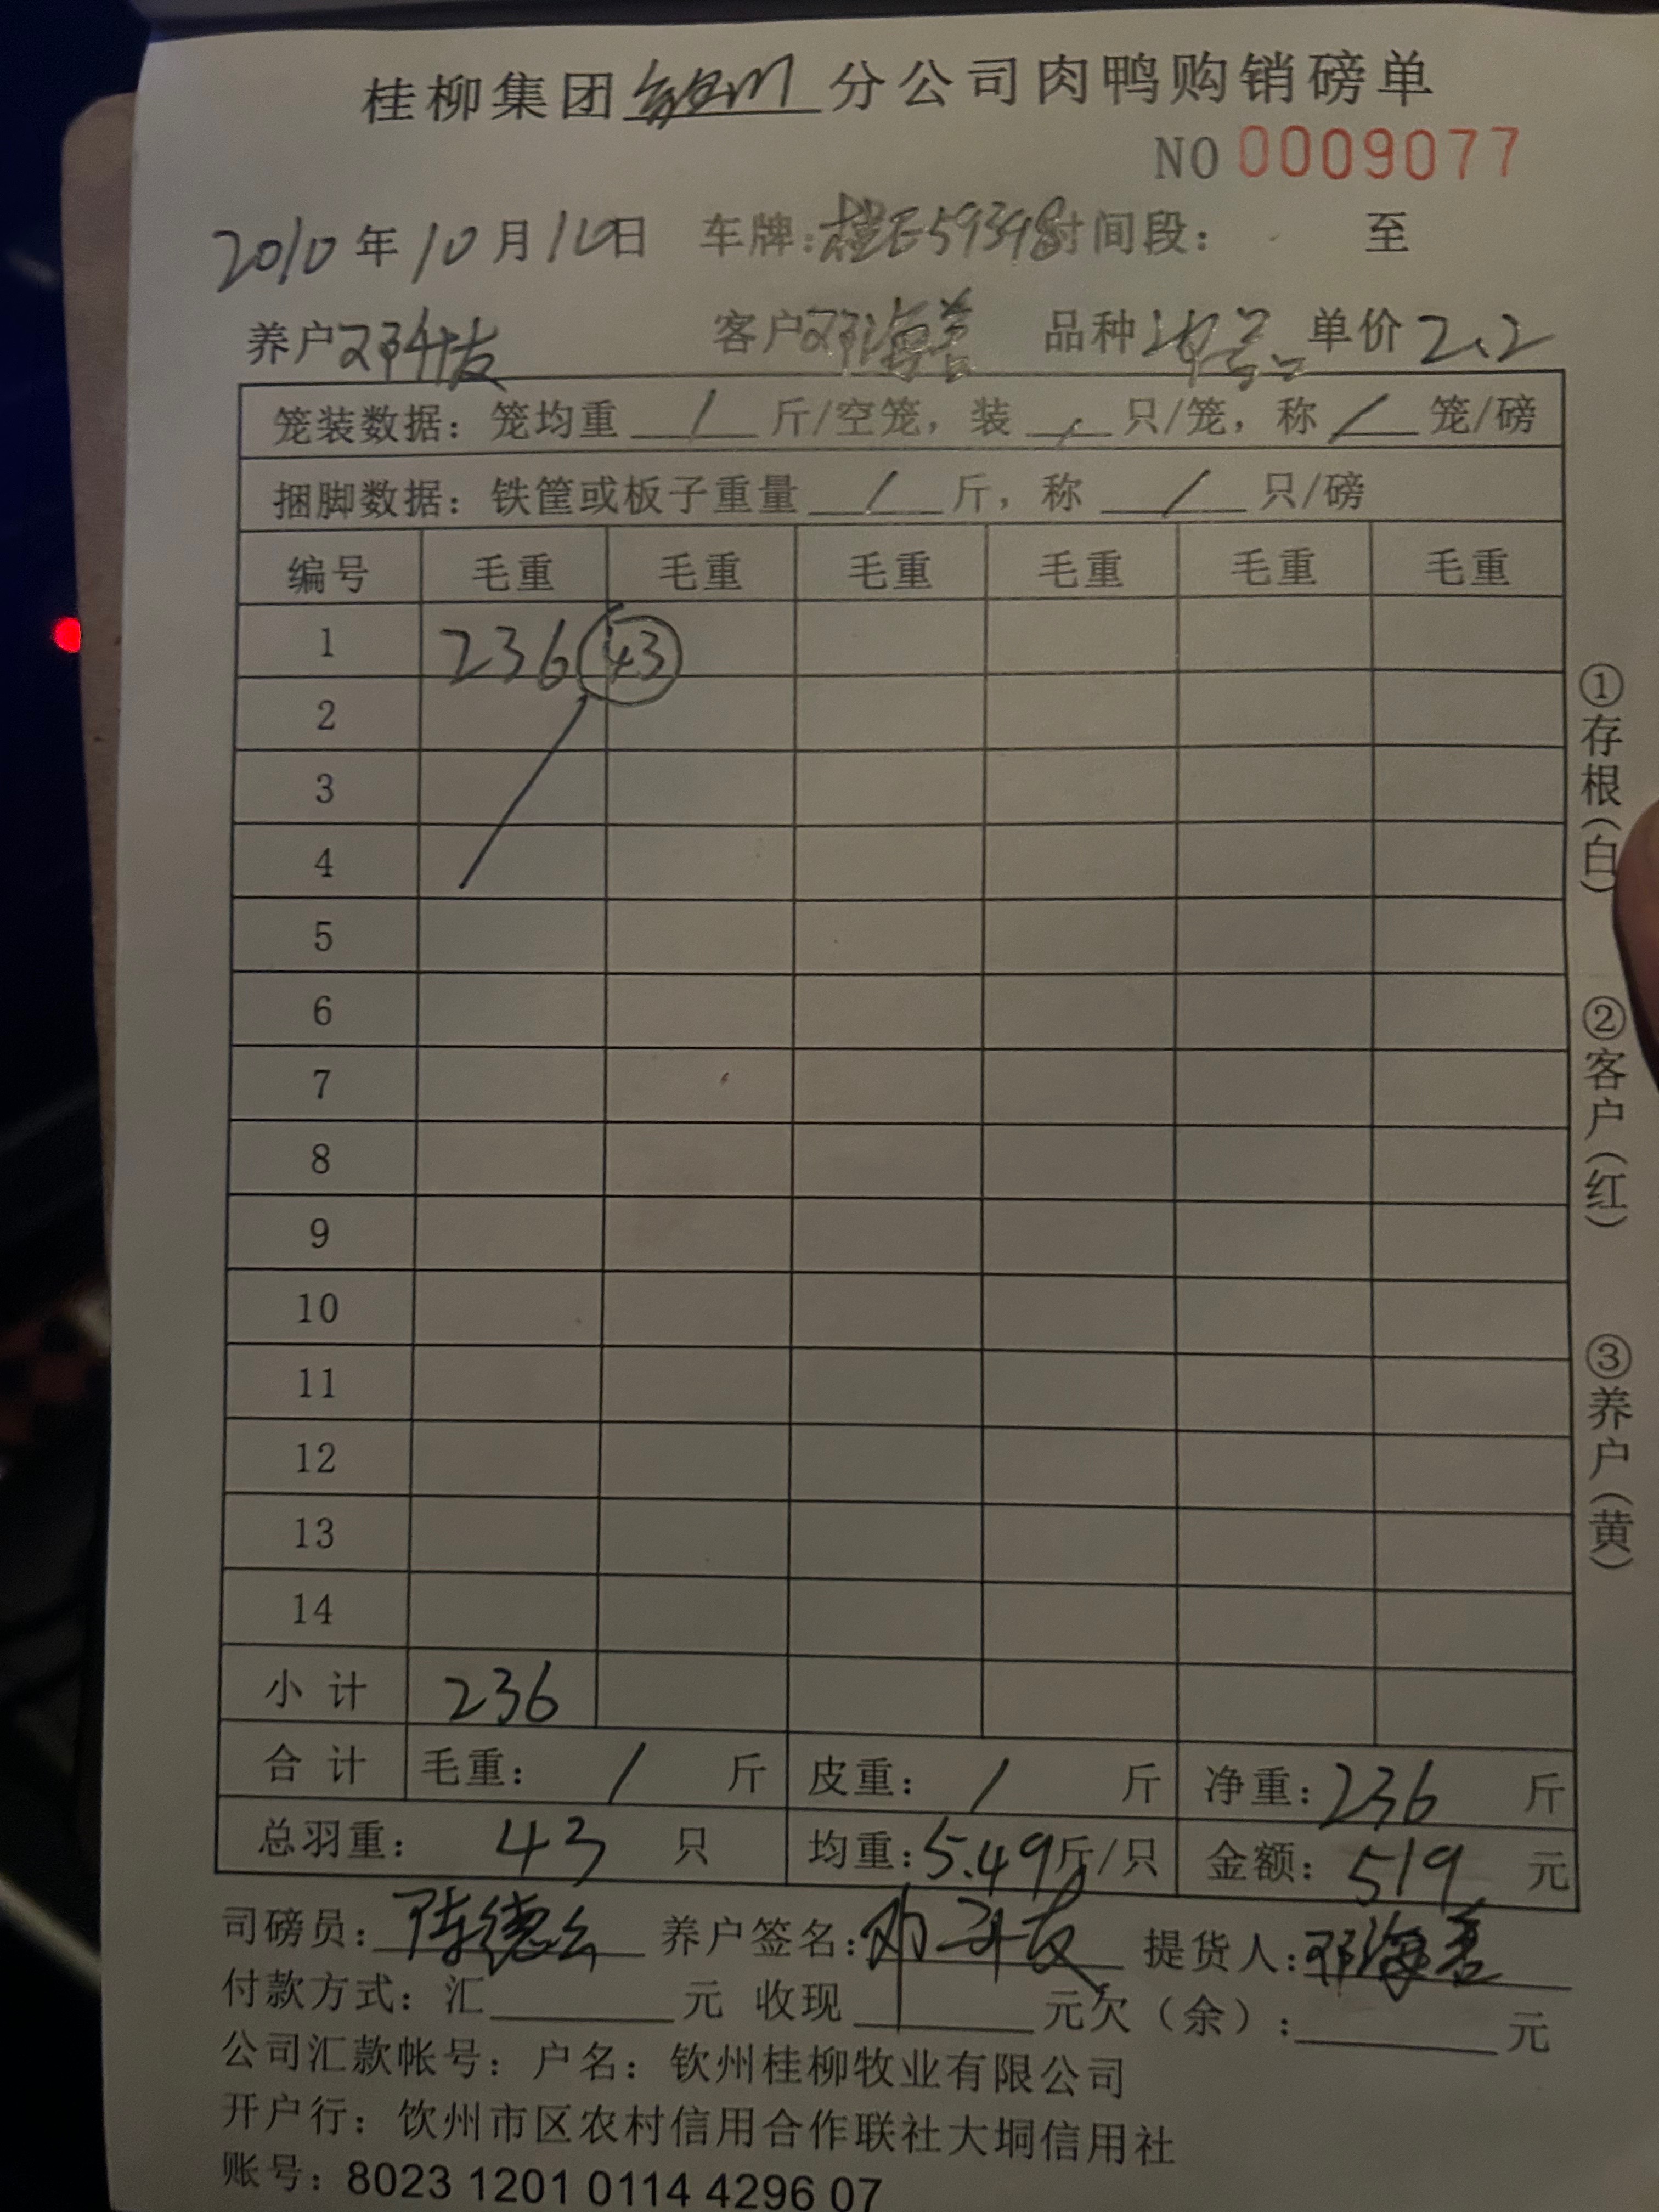 桂柳集团钦州分公司肉鸭购销磅单
NO 0009077
2010年10月16日 车牌:桂E59398时间段: 至
养户邓升友 客户邓海善 品种 单价2.2
笼装数据:笼均重 / 斤/空笼,装 / 只/笼,称 / 笼/磅
捆脚数据:铁筐或板子重量 / 斤,称 / 只/磅
编号 毛重 毛重 毛重 毛重 毛重 毛重
1 236 43
2
3
4
5
6
7
8
9
10
11
12
13
14
小计 236
合计 毛重: / 斤 皮重: / 斤 净重:236 斤
总羽重: 43 只 均重:5.49斤/只 金额:519 元
司磅员:陈德 养户签名:邓升友 提货人:邓海善
付款方式:汇 元 收现 元欠(余): 元
公司汇款帐号:户名:钦州桂柳牧业有限公司
开户行:饮州市区农村信用合作联社大垌信用社
账号:8023 1201 0114 4296 07
①存根(白)
②客户(红)
③养户(黄)